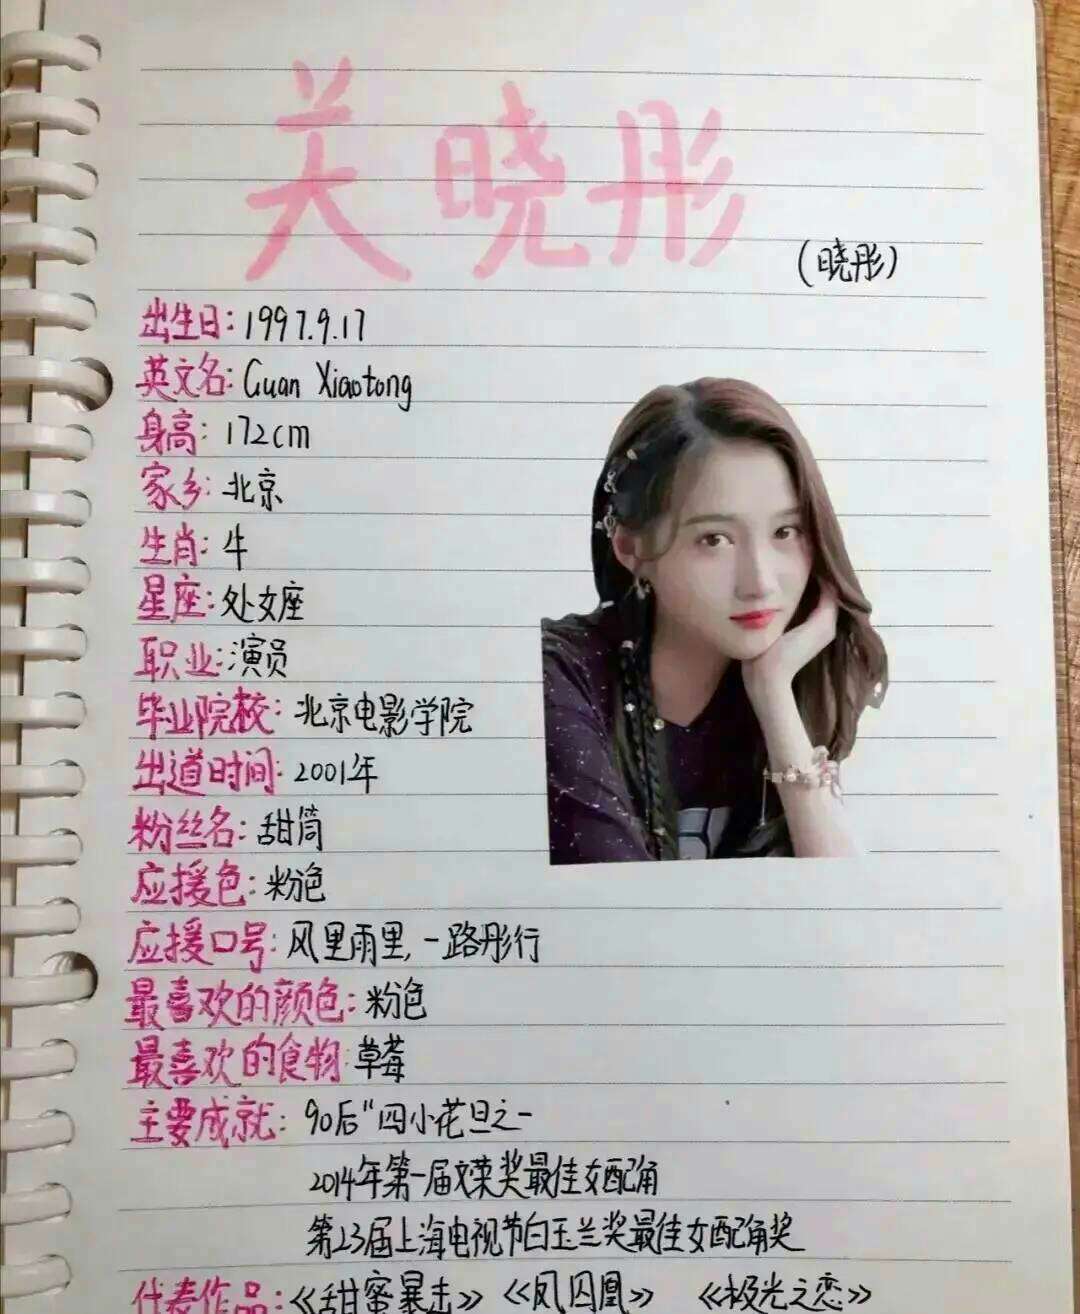 关晓彤
(晓彤)
出生日:1997.9.17
英文名:Guan Xiaotong
身高:172cm
家乡:北京
生肖:牛
星座:处女座
职业:演员
毕业院校:北京电影学院
出道时间:2001年
粉丝名:甜筒
应援色:粉色
应援口号:风里雨里,一路彤行
最喜欢的颜色:粉色
最喜欢的食物:草莓
主要成就:90后"四小花旦之一
2014年第一届文荣奖最佳女配角
第23届上海电视节白玉兰奖最佳女配角奖
代表作品:《甜蜜暴击》《凤囚凰》《极光之恋》